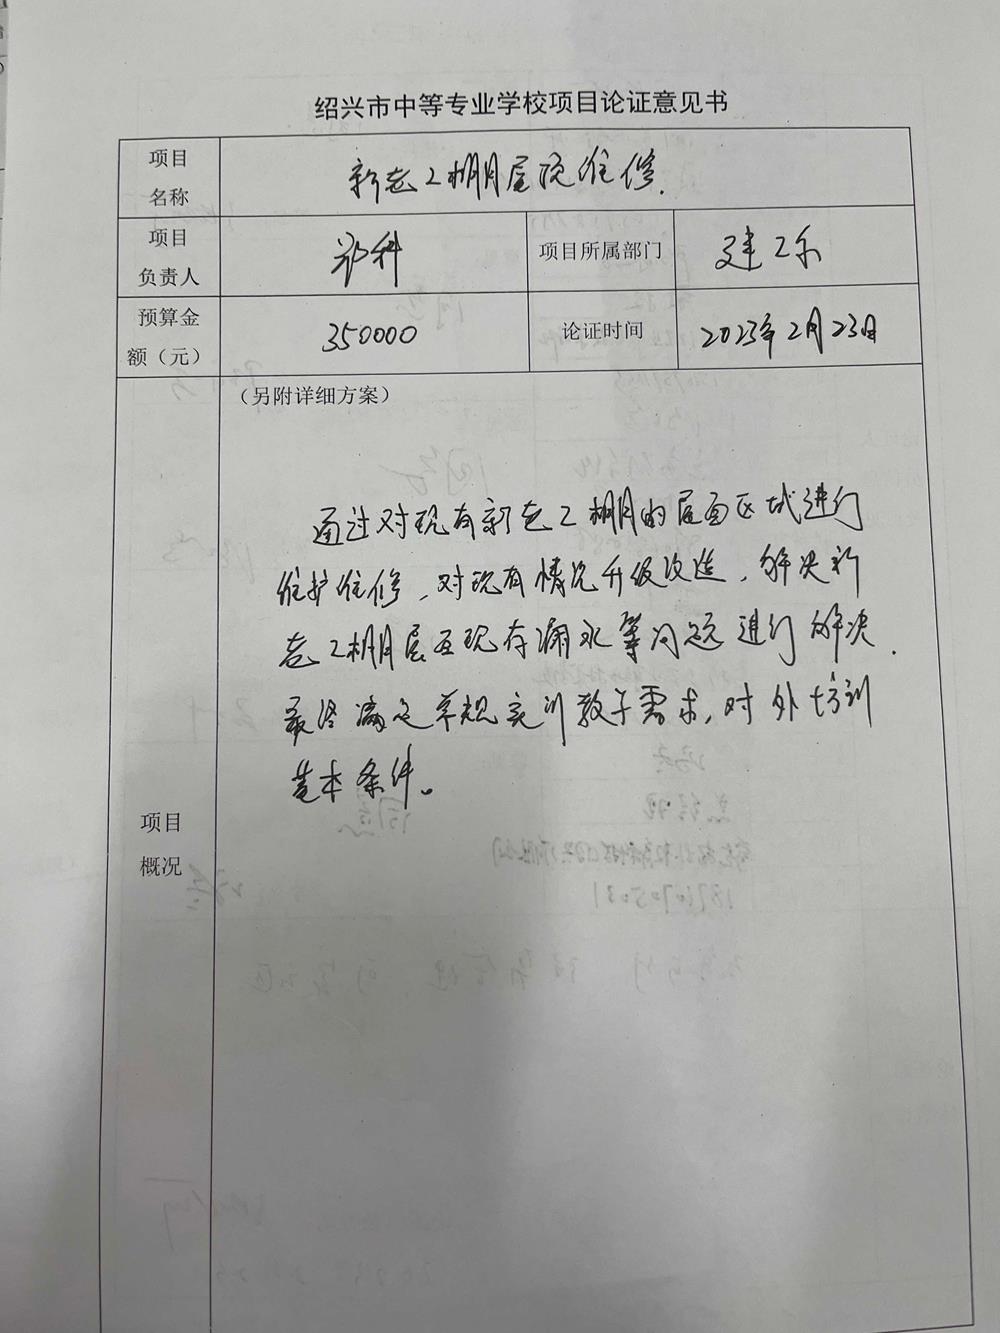 绍兴市中等专业学校项目论证意见书
项目名称 新老工棚屋顶维修.
项目负责人 邓科 项目所属部门 建工系
预算金额（元） 350000 论证时间 2023年2月23日
（另附详细方案）
通过对现有新老工棚的屋面区域进行
维护维修，对现有情况升级改造，解决新
老工棚屋面现存漏水等问题进行解决.
最终满足常规实训教学需求，对外培训
基本条件。
项目概况